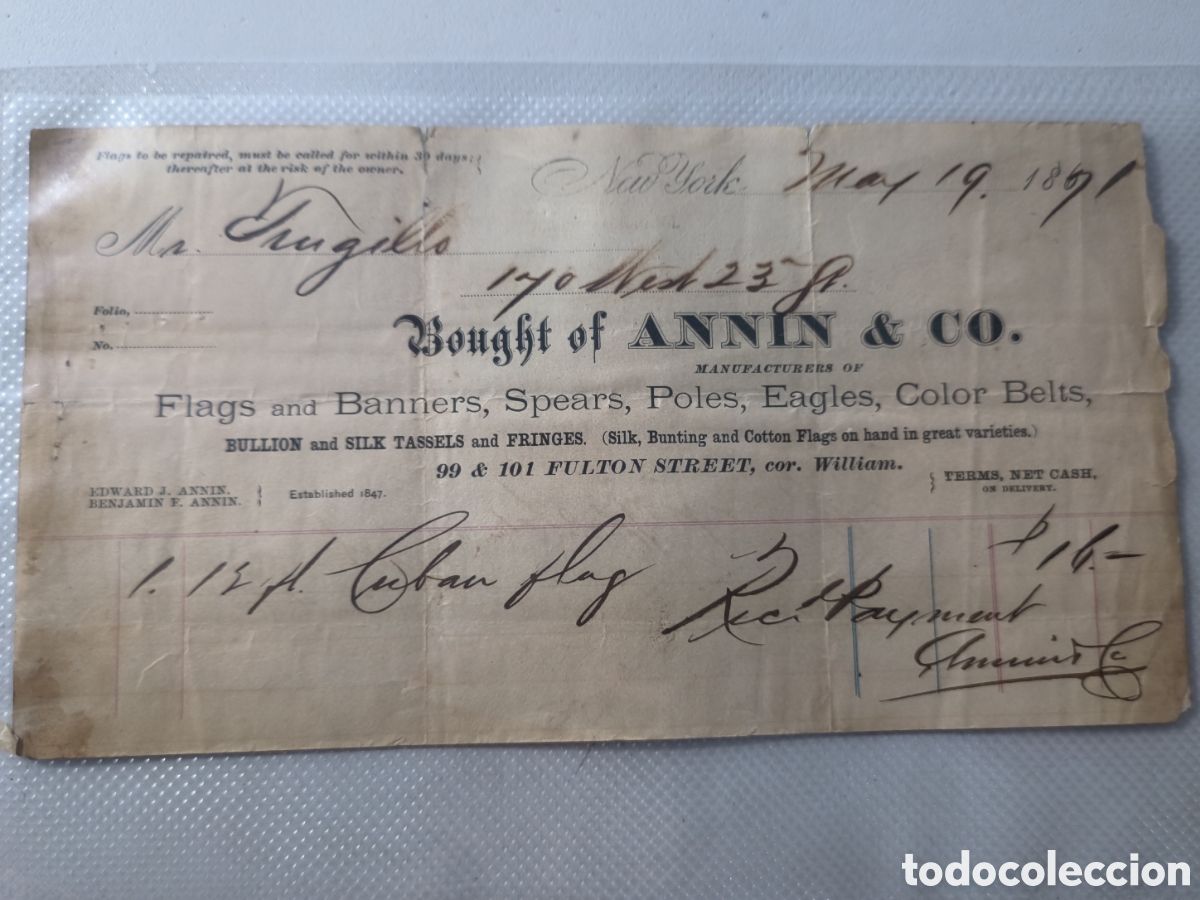 Flags to be repaired, must be called for within 30 days;
thereafter at the risk of the owner.
New York. May 19. 1871
Mr. Trugillo
170 West 23 St.
Folio,
No.
Bought of ANNIN & CO.
MANUFACTURERS OF
Flags and Banners, Spears, Poles, Eagles, Color Belts,
BULLION and SILK TASSELS and FRINGES. (Silk, Bunting and Cotton Flags on hand in great varieties.)
99 & 101 FULTON STREET, cor. William.
EDWARD J. ANNIN.
BENJAMIN F. ANNIN.
Established 1847.
TERMS, NET CASH,
ON DELIVERY.
1. ft. Cuban flag $16.-
Rec'd Payment
Annin & Co
todocoleccion